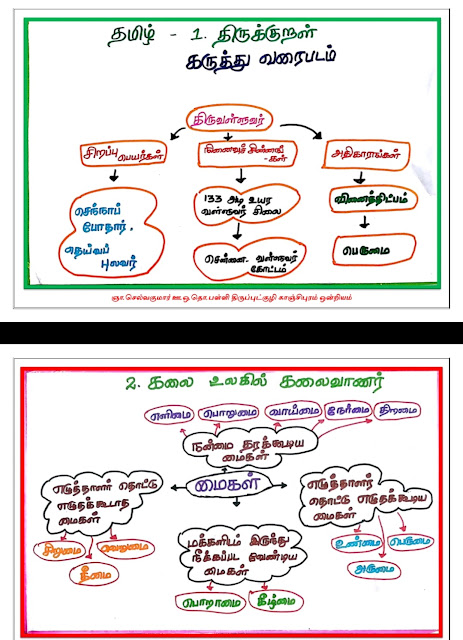 தமிழ் - 1. திருக்குறள்
கருத்து வரைபடம்
திருவள்ளுவர்
சிறப்பு
பெயர்கள்
நினைவுச் சின்னங்
-கள்
அதிகாரங்கள்
செந்நாப்
போதார்.
தெய்வப்
புலவர்
133 அடி உயர
வள்ளுவர் சிலை
சென்னை வள்ளுவர்
கோட்டம்
வினைத்திட்பம்
பெருமை
ஞா.செல்வகுமார் ஊ.ஒ.தொ.பள்ளி திருப்புட்குழி காஞ்சிபுரம் ஒன்றியம்
2. கலை உலகில் கலைவாணர்
எளிமை
பொறுமை
வாய்மை
நேர்மை
திறமை
நன்மை தரக்கூடிய
மைகள்
மைகள்
எழுத்தாளர் தொட்டு
எழுதக்கூடாத
மைகள்
சிறுமை
வெறுமை
தீமை
மக்களிடம் இருந்து
நீக்கப்பட வேண்டிய
மைகள்
பொறாமை
கீழ்மை
எழுத்தாளர்
தொட்டு எழுதக்கூடிய
மைகள்
உண்மை
பெருமை
அருமை